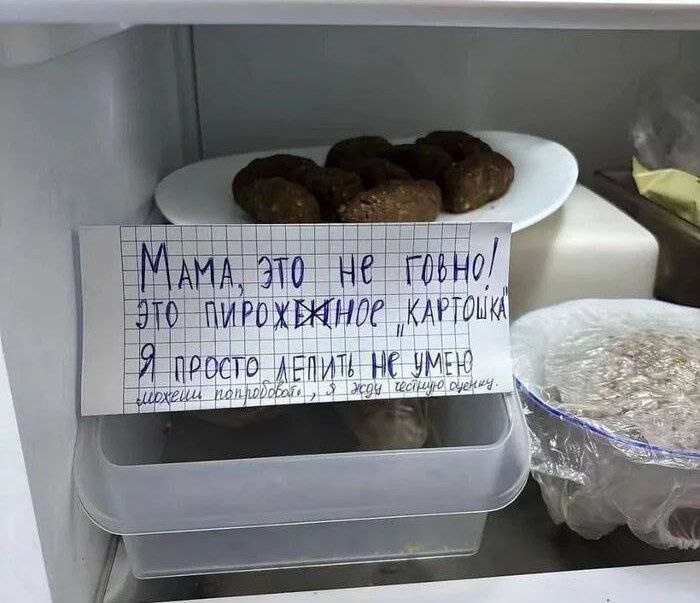 Мама, это не говно!
это пирожное „картошка"
Я просто лепить не умею
можеш попробовать, я жду честную оценку.